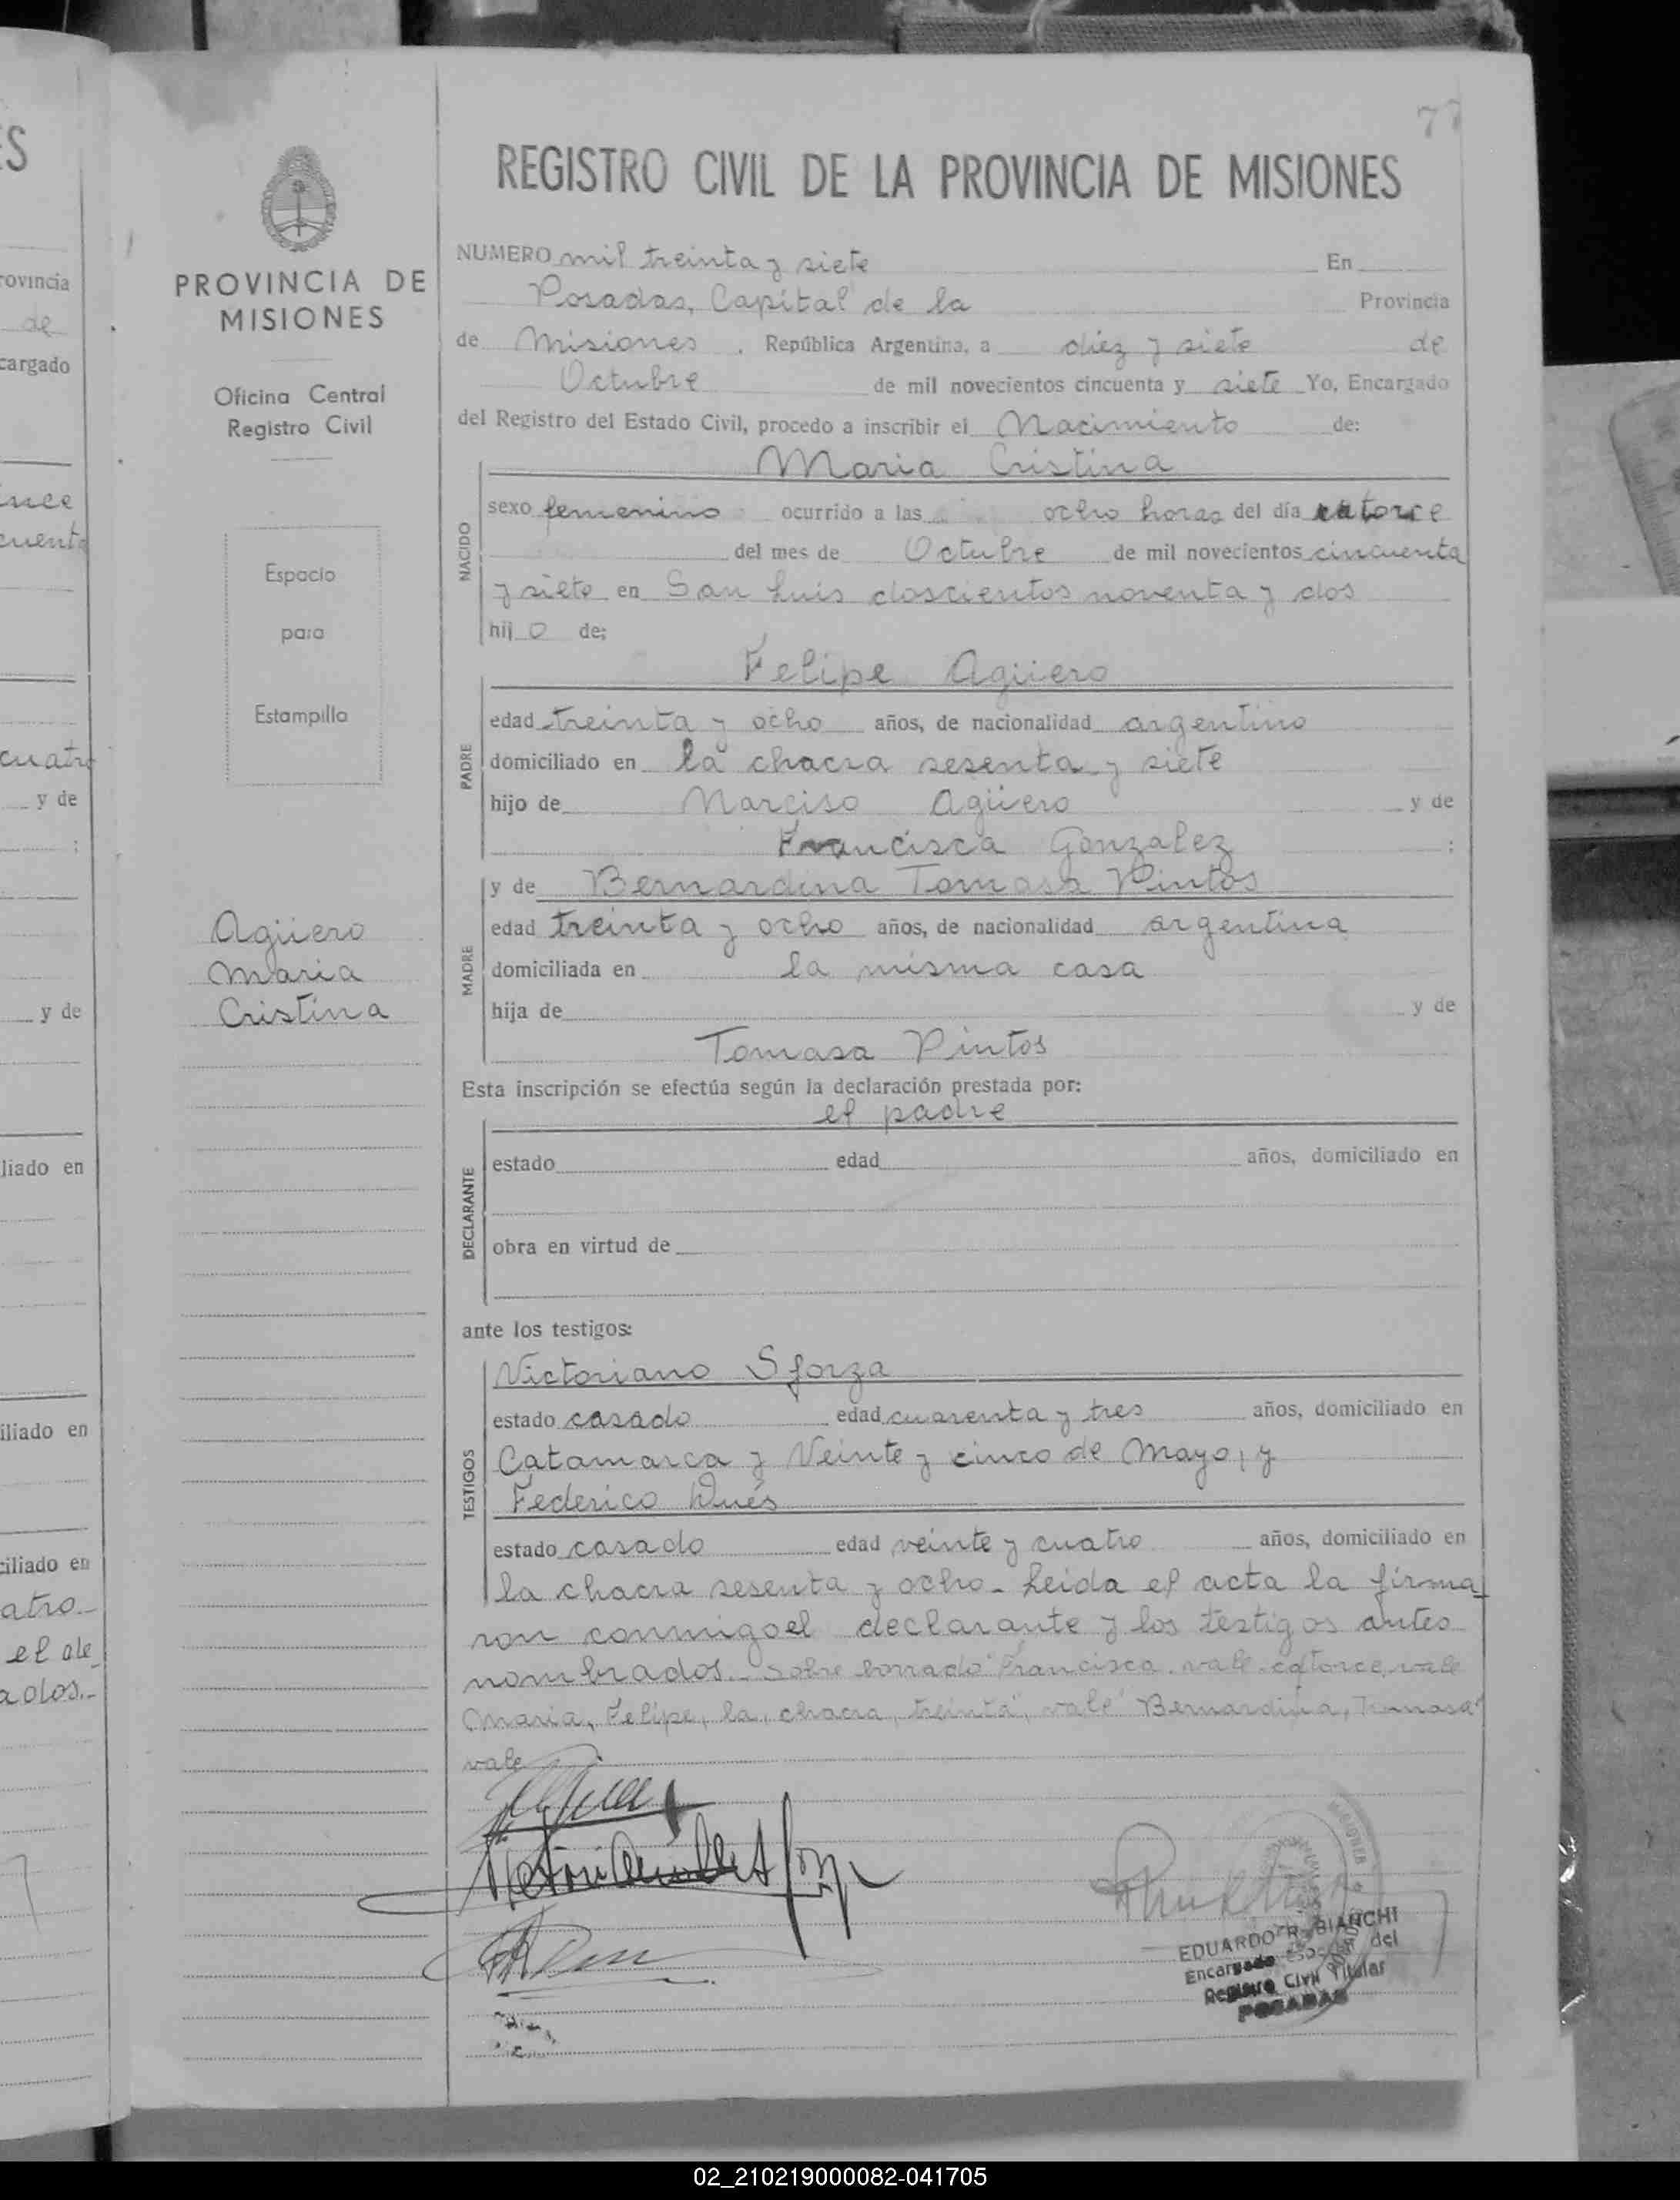 77
REGISTRO CIVIL DE LA PROVINCIA DE MISIONES
PROVINCIA DE
MISIONES
Oficina Central
Registro Civil
Espacio
para
Estampilla
Agüero
Maria
Cristina
NUMERO mil treinta y siete En
Posadas, Capital de la Provincia
de Misiones, República Argentina, a diez y siete de
Octubre de mil novecientos cincuenta y siete Yo, Encargado
del Registro del Estado Civil, procedo a inscribir el Nacimiento de:
Maria Cristina
NACIDO
sexo femenino ocurrido a las ocho horas del día catorce
del mes de Octubre de mil novecientos cincuenta
y siete en San Luis doscientos noventa y dos
hij o de;
Felipe Agüero
PADRE
edad treinta y ocho años, de nacionalidad argentino
domiciliado en la chacra sesenta y siete
hijo de Narciso Agüero y de
Francisca Gonzalez ;
MADRE
y de Bernardina Tomasa Pintos
edad treinta y ocho años, de nacionalidad argentina
domiciliada en la misma casa
hija de y de
Tomasa Pintos
Esta inscripción se efectúa según la declaración prestada por:
el padre
DECLARANTE
estado edad años, domiciliado en
obra en virtud de
ante los testigos:
TESTIGOS
Victoriano Sforza
estado casado edad cuarenta y tres años, domiciliado en
Catamarca y Veinte y cinco de Mayo, y
Federico
estado casado edad veinte y cuatro años, domiciliado en
la chacra sesenta y ocho - Leida el acta la firma_
ron conmigo el declarante y los testigos antes
nombrados.- Sobre borrado "Francisca. vale. catorce, vale
Maria, Felipe, la, chacra, treinta", vale "Bernardina, Tomasa"
vale
EDUARDO R. BIANCHI
Encargado del
Registro Civil Titular
POSADAS
MISIONES
rovincia
de
cargado
cuatro
y de
y de
liado en
iliado en
ciliado en
atro.-
el de_
ados.-
02_210219000082-041705